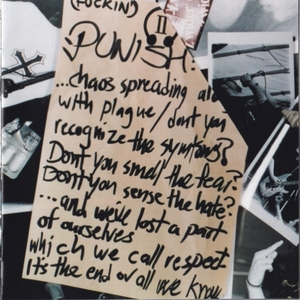 (FUCKIN')
II
PUNISH!
...chaos spreading a
with plague / dont you
recognize the symptoms?
Dont you smell the fear?
Dont you sense the hate?
...and weve lost a part
of ourselves
which we call respect
its the end ov all we know